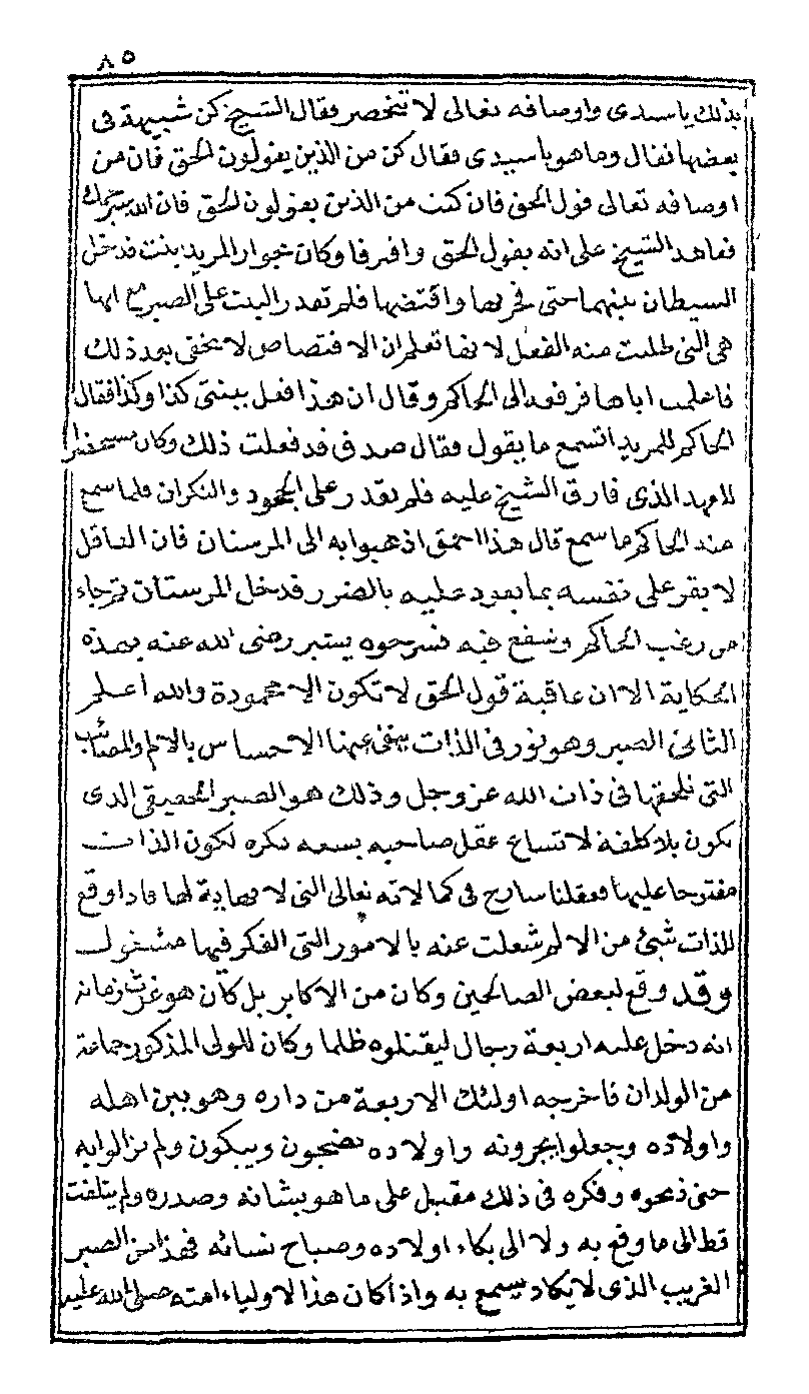 ٨٥
بذلك ياسيدى واوصافه تعالى لا تنحصر فقال الشيخ كن شبيهة فى
بعضها فقال وما هو ياسيدى فقال كن من الذين يقولون الحق فان من
اوصافه تعالى قول الحق فان كنت من الذين يقولون الحق فان الله سيرحمك
فعاهد الشيخ على انه يقول الحق وافترقا وكان بجوار المريد بنت فدخل
الشيطان بينهما حتى فجر بها وافتضها فلم تقدر البنت على الصبر مع انها
هى التى طلبت منه الفعل لانها تعلم ان الافتصاص لا يخفى بعد ذلك
فاعلمت اباها فرفعه الى الحاكم وقال ان هذا فعل ببنتى كذا وكذا فقال
الحاكم للمريد اتسمع ما يقول فقال صدق قد فعلت ذلك وكان مستحضرا
للعهد الذى فارق الشيخ عليه فلم يقدر على الجحود والنكران فلما سمع
منه الحاكم ما سمع قال هذا احمق اذهبوا به الى المرستان فان العاقل
لا يقر على نفسه بما يعود عليه بالضرر فدخل المرستان ثم جاء
من رغب الحاكم وشفع فيه فسرحوه يشير رضى الله عنه بهذه
الحكاية الا ان عاقبة قول الحق لا تكون الا محمودة والله اعلم
الثانى الصبر وهو نور فى الذات ينفى عنها الاحساس بالالم والمصائب
التى تلحقها فى ذات الله عز وجل وذلك هو الصبر الحقيقى الذى
يكون بلا كلفة لاتساع عقل صاحبه بسعة فكره لكون الذات
مفتوحا عليها فعقلنا سارح فى كمالاته تعالى التى لا نهاية لها فاذا وقع
للذات شئ من الالم شغلت عنه بالامور التى الفكر فيها مشغول
وقد وقع لبعض الصالحين وكان من الاكابر بل كان هو غوث زمانه
انه دخل عليه اربعة رجال ليقتلوه ظلما وكان للولى المذكور جماعة
من الولدان فاخرجه اولئك الاربعة من داره وهو بين اهله
واولاده وجعلوا يجرونه واولاده يضجون ويبكون ولم يزالوا به
حتى ذبحوه وفكره فى ذلك مقبل على ما هو بشانه وصدره ولم يتلفت
قط الى ما وقع به ولا الى بكاء اولاده وصياح نسائه فهذا من الصبر
الغريب الذى لا يكاد يسمع به واذا كان هذا لاولياء امته صلى الله عليه